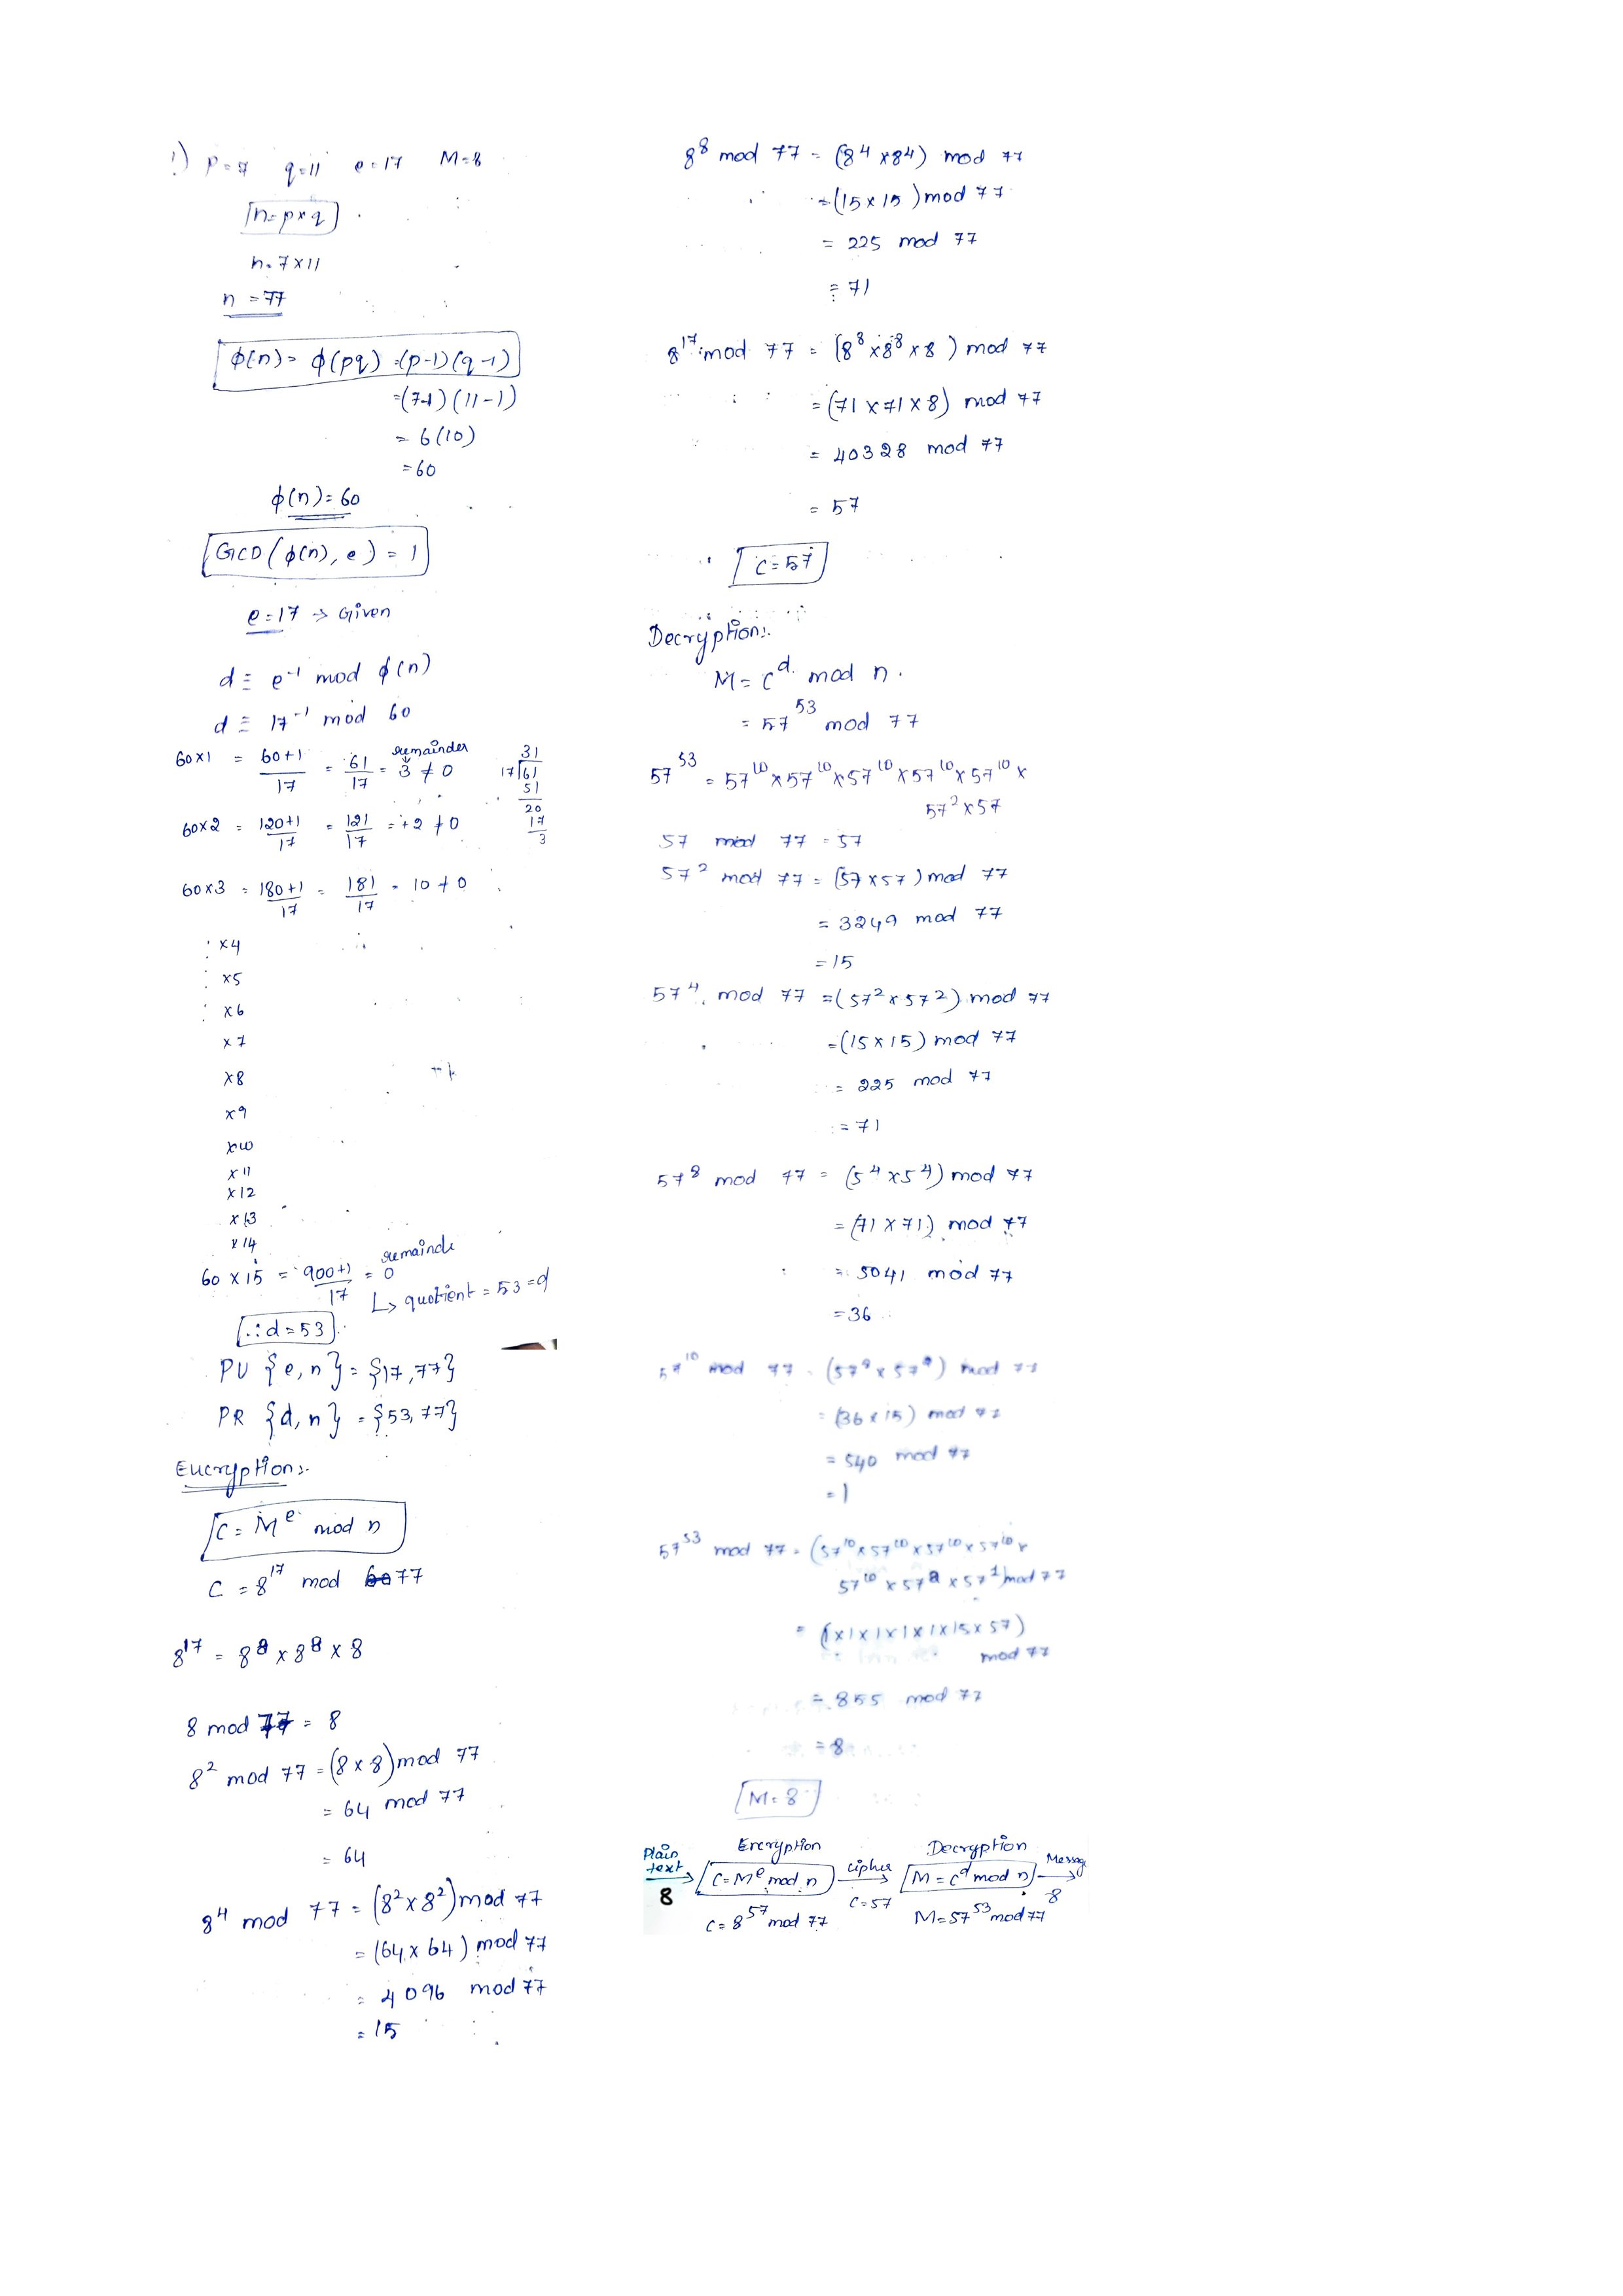 1) P=7 q=11 e=17 M=8
n=p×q
n=7×11
n=77
ϕ(n)=ϕ(pq)=(p-1)(q-1)
=(7-1)(11-1)
=6(10)
=60
ϕ(n)=60
GCD(ϕ(n),e)=1
e=17→Given
d≡e⁻¹ mod ϕ(n)
d≡17⁻¹ mod 60
60×1 = 60+1/17 = 61/17 = 3≠0 remainder
31
17)61
51
20
17
3
60×2 = 120+1/17 = 121/17 = +2≠0
60×3 = 180+1/17 = 181/17 = 10≠0
×4
×5
×6
×7
×8
×9
×10
×11
×12
×13
×14
60×15 = 900+1/17 = 0 remainde
↳ quotient = 53 = d
∴d=53
PU {e,n} = {17,77}
PR {d,n} = {53,77}
Encryption:
C=Mᵉ mod n
C=8¹⁷ mod 77
8¹⁷ = 8⁸×8⁸×8
8 mod 77 = 8
8² mod 77 = (8×8) mod 77
= 64 mod 77
= 64
8⁴ mod 77 = (8²×8²) mod 77
= (64×64) mod 77
= 4096 mod 77
= 15
8⁸ mod 77 = (8⁴×8⁴) mod 77
=(15×15) mod 77
= 225 mod 77
= 71
8¹⁷ mod 77 = (8⁸×8⁸×8) mod 77
= (71×71×8) mod 77
= 40328 mod 77
= 57
C=57
Decryption:
M=Cᵈ mod n.
= 57⁵³ mod 77
57⁵³ = 57¹⁰×57¹⁰×57¹⁰×57¹⁰×57¹⁰×
57²×57
57 mod 77 = 57
57² mod 77 = (57×57) mod 77
= 3249 mod 77
=15
57⁴ mod 77 =(57²×57²) mod 77
=(15×15) mod 77
= 225 mod 77
= 71
57⁸ mod 77 = (5⁴×5⁴) mod 77
=(71×71) mod 77
= 5041 mod 77
=36
57¹⁰ mod 77 = (57⁸×57²) mod 77
= (36×15) mod 77
= 540 mod 77
= 1
57⁵³ mod 77 = (57¹⁰×57¹⁰×57¹⁰×57¹⁰×
57¹⁰×57²×57¹) mod 77
= (1×1×1×1×1×15×57)
mod 77
= 855 mod 77
= 8
M=8
Plain text 8 → Encryption C=Mᵉ mod n → cipher C=57 → Decryption M=Cᵈ mod n → Messag 8
C=8⁵⁷ mod 77
M=57⁵³ mod 77